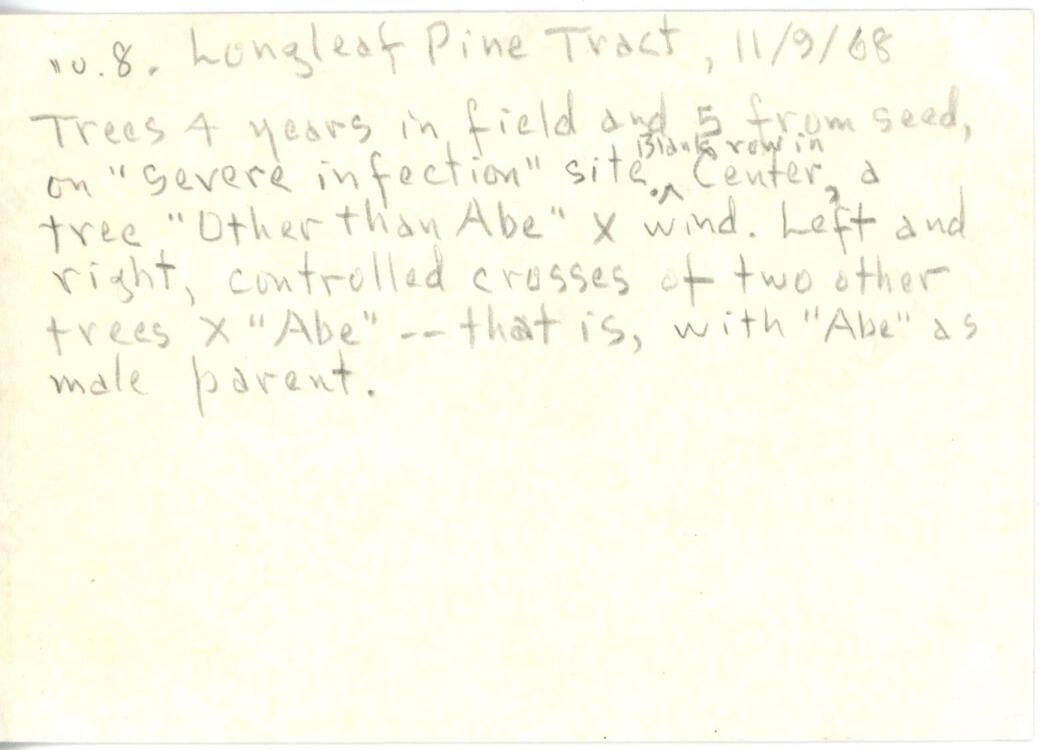 No. 8. Longleaf Pine Tract, 11/9/68
Trees 4 years in field and 5 from seed,
Blank row in
on "severe infection" site. ^ Center, a
tree "Other than Abe" X wind. Left and
right, controlled crosses of two other
trees X "Abe" -- that is, with "Abe" as
male parent.